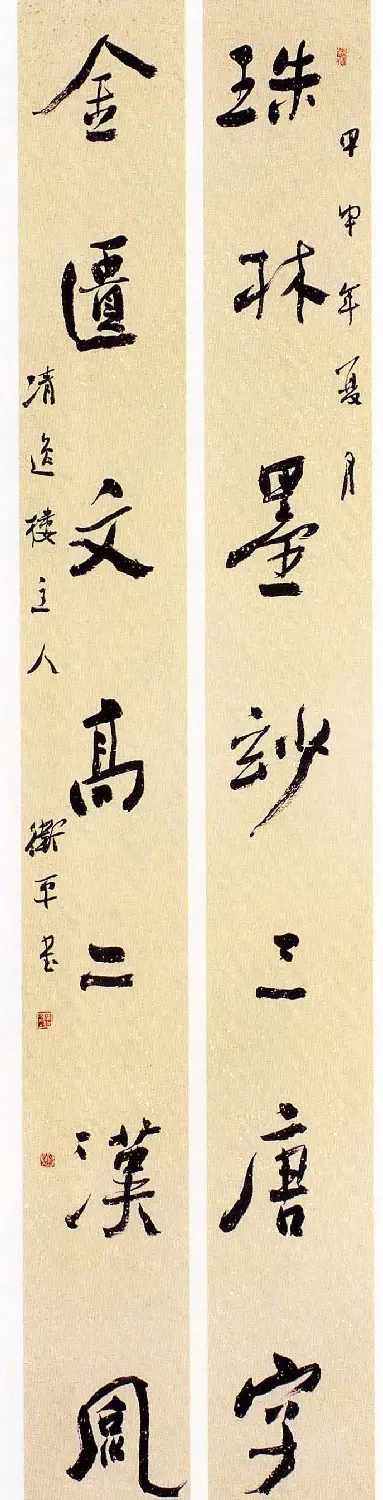 甲申年夏月
珠林墨玅三唐字
金匱文高二漢風
清逸樓主人
衛平書